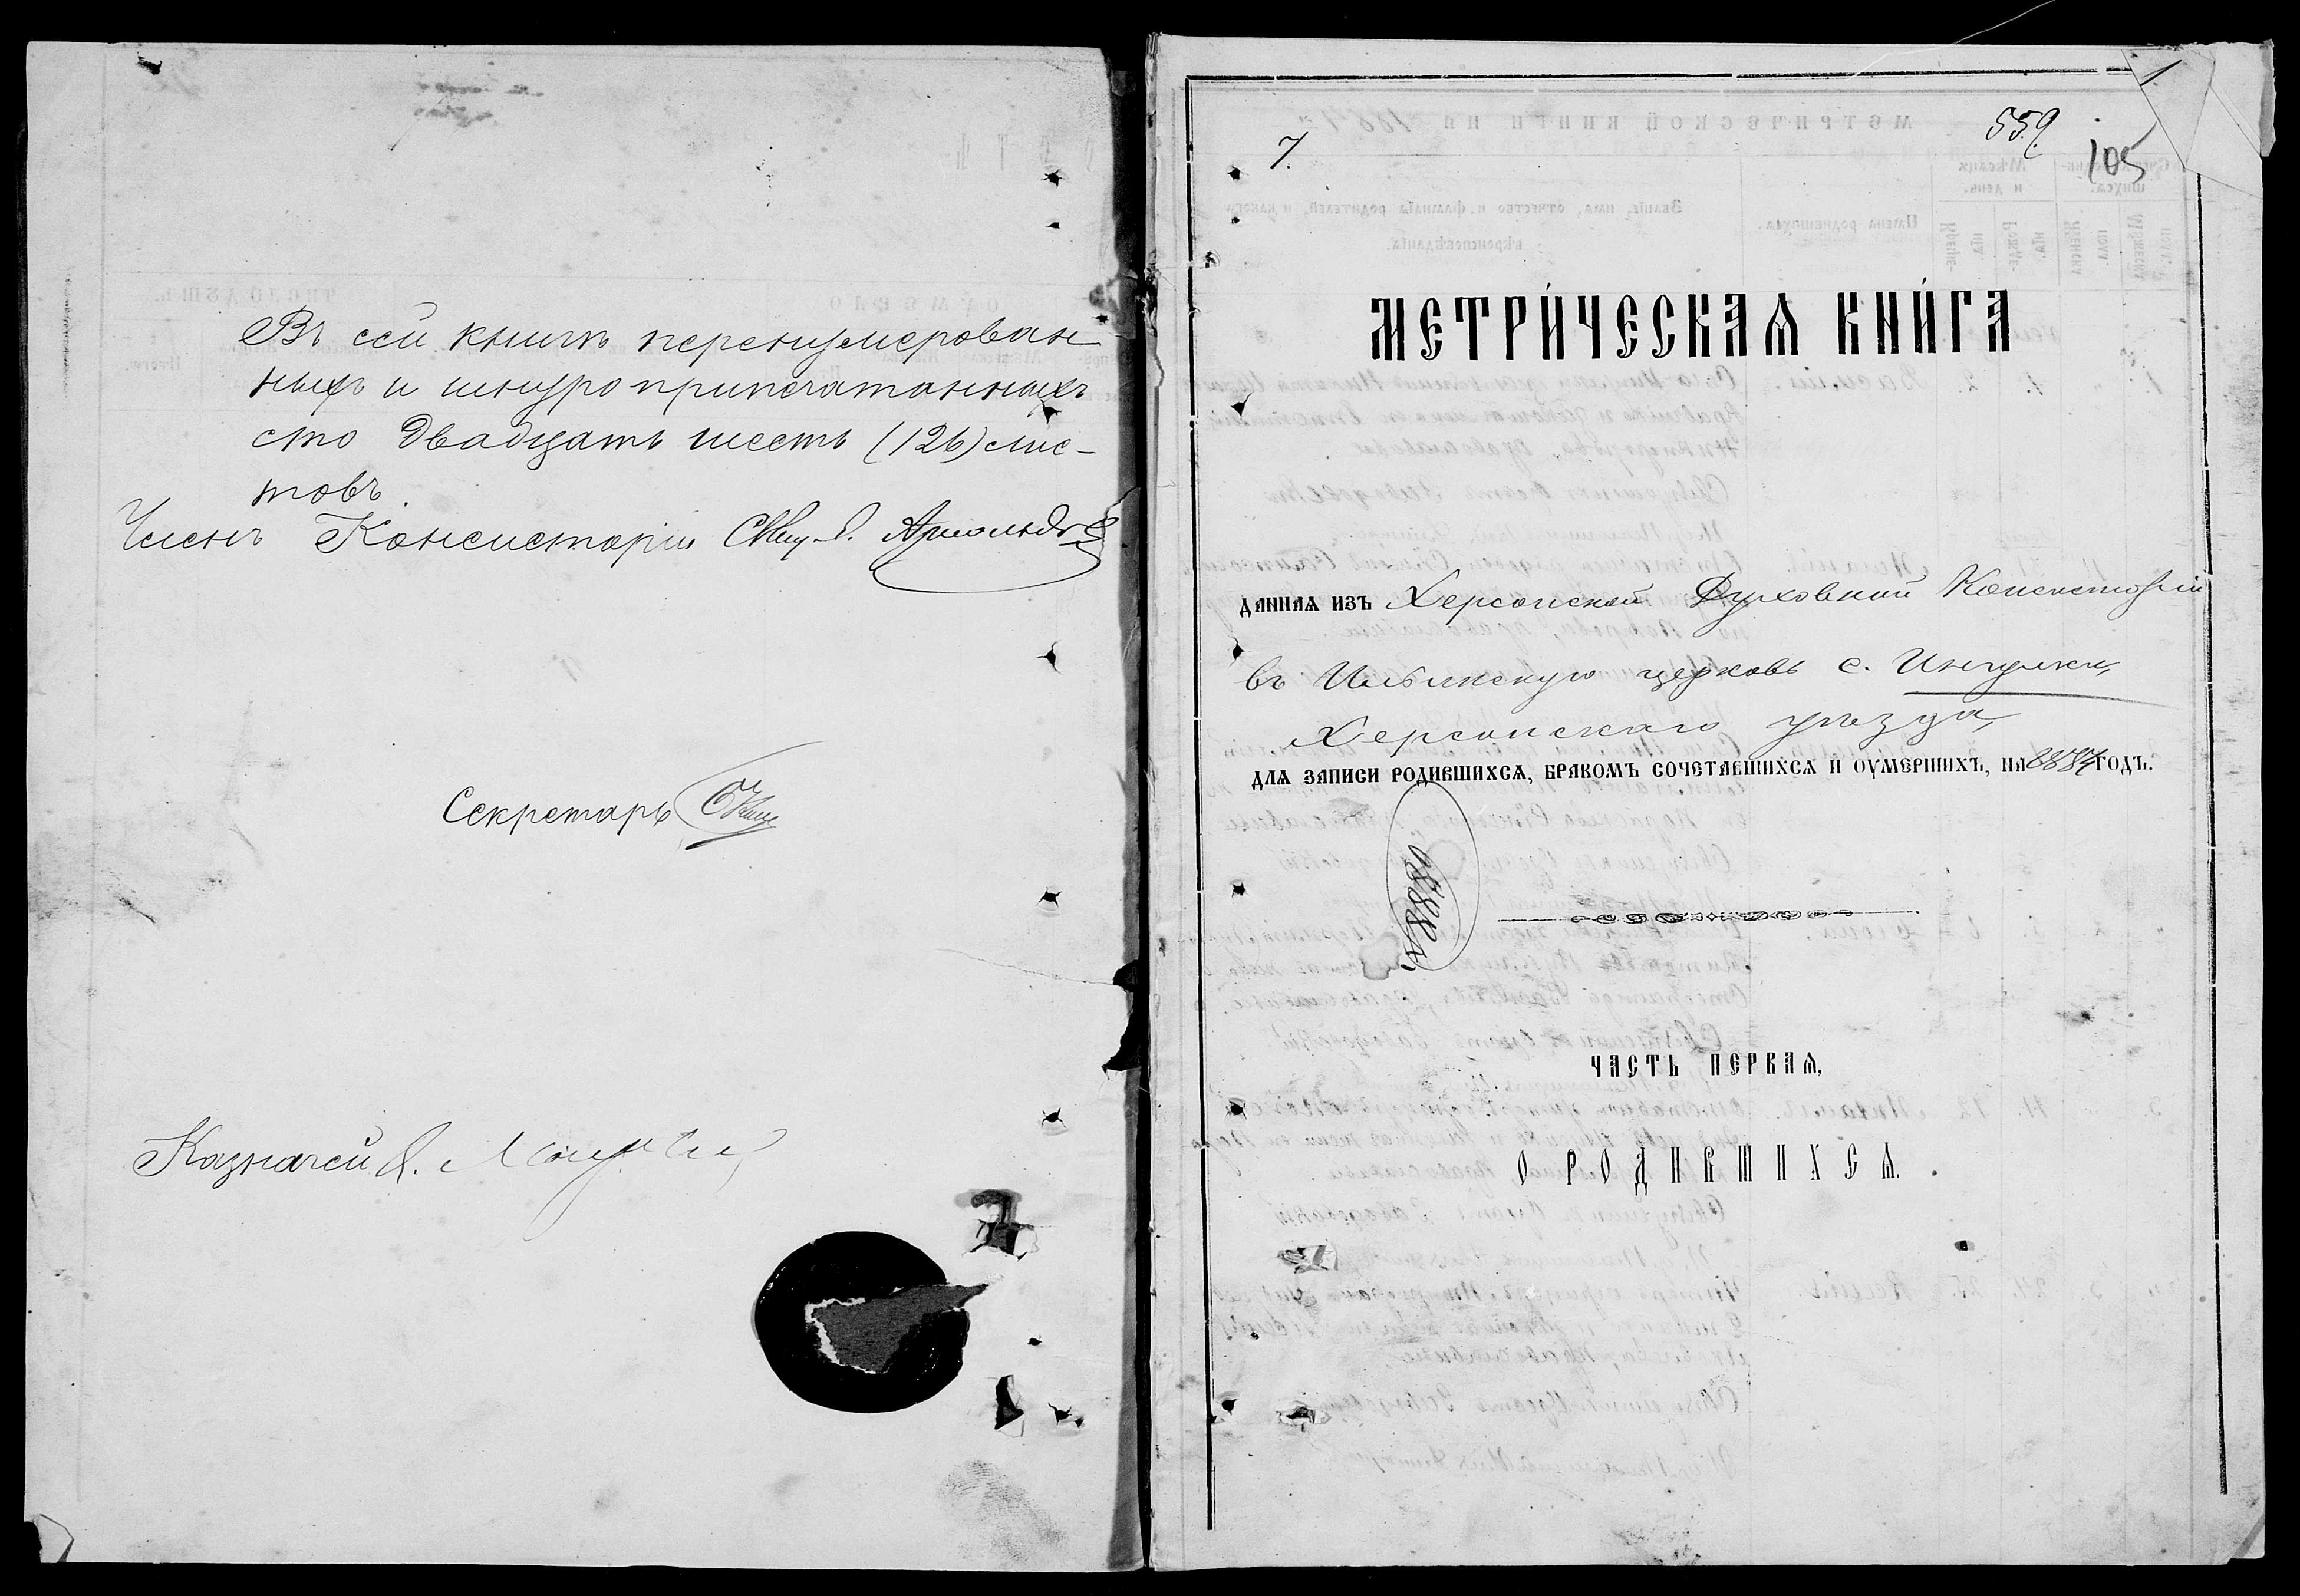 Въ сей книгѣ перенумерован
ныхъ и шнуроприпечатанныхъ
сто двадцать шесть (126) лис-
товъ.
Членъ Консисторіи Свящ.
Секретарь
Казначей
7.
559.
105
1
МЕТРИ́ЧЕСКАѦ КНИ́ГА
ДАННАѦ ИЗЪ Херсонской Духовной Консисторіи
въ Ильинскую церковь с. Ингулки,
Херсонскаго уѣзда,
ДЛѦ ЗАПИСИ РОДИВШИХСѦ, БРАКОМЪ СОЧЕТАВШИХСѦ И ОУМЕРШИХЪ, НА 1887 ГОДЪ.
ЧАСТЬ ПЕРВАѦ,
О РОДИВШИХСѦ.